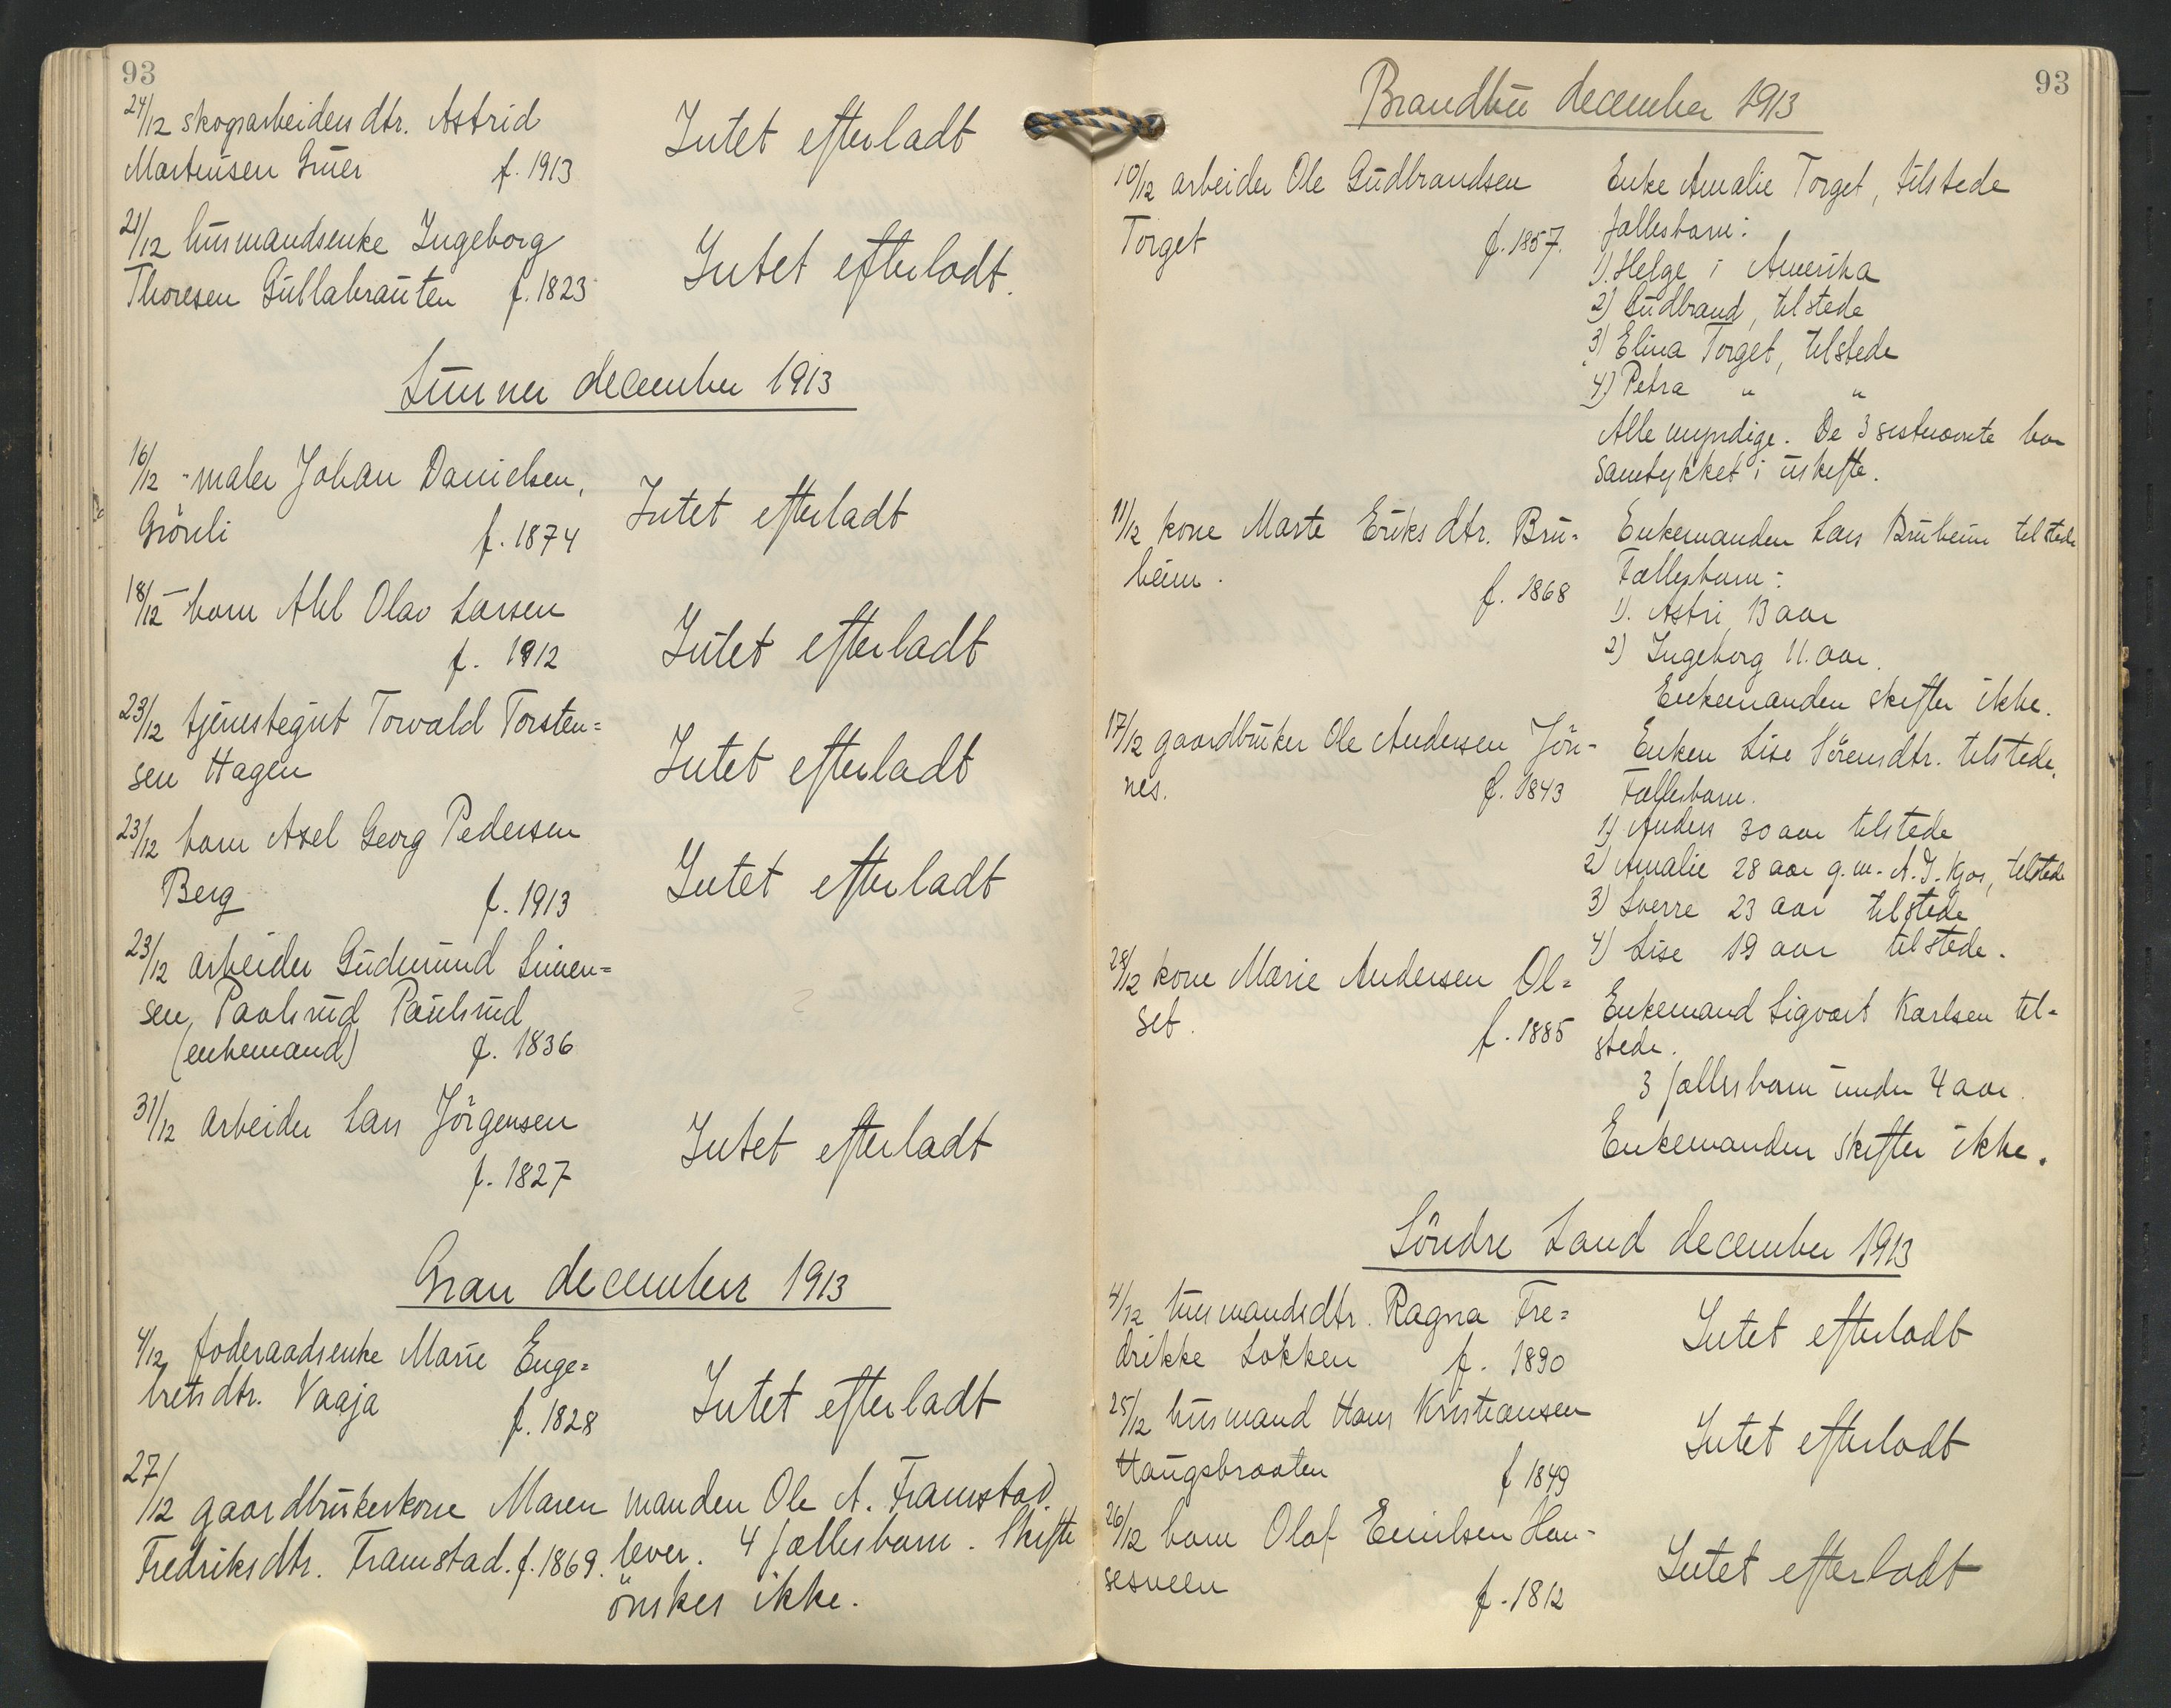 93
24/12 skogsarbeiders dtr. Astrid
Martinsen Gruer f. 1913
Intet efterladt
21/12 husmandsenke Ingeborg
Thoresen Gullabrauten f. 1823
Intet efterladt.
Lunner december 1913
16/12 - maler Johan Danielsen,
Grönli f. 1874
Intet efterladt
18/12 - barn Olav Larsen
f. 1912
Intet efterladt
23/12 tjenestegut Torvald Torsten=
sen Hagen
Intet efterladt
23/12 barn Axel Georg Pedersen
Berg f. 1913
Intet efterladt
23/12 arbeider Gudmund Simen=
sen, Paulsrud Paulsrud
(enkemand) f. 1836
31/12 arbeider Lars Jörgensen
f. 1827
Intet efterladt
Gran december 1913
4/12 foderaadsenke Marie Enge=
bretsdtr. Vaaja f. 1828
Intet efterladt
27/12 gaardbrukerkone Maren
Fredriksdtr. Framstad. f. 1869.
manden Ole A. Framstad.
lever. 4 fællesbarn. Skifte
önskes ikke.
93
Brandbu december 1913
10/12 arbeider Ole Gudbrandsen
Torget f. 1857.
Enke Amalie Torget, tilstede
fællesbarn:
1). Helge i Amerika
2) Gudbrand, tilstede
3) Elina Torget, tilstede
4) Petra " "
Alle myndige. De 3 sistnævnte har
samtykket i uskifte.
11/12 kone Marte Eriksdtr. Bru=
heim. f. 1868
Enkemanden Lars Bruheim tilstede
Fællesbarn:
1). Astri 13 aar
2) Ingeborg 11. aar.
Enkemanden skifter ikke.
17/12 gaardbruker Ole Andersen Jön-
nes. f. 1843
Enken Lise Sörensdtr. tilstede.
Fællesbarn.
1) Anders 30 aar tilstede
2) Amalie 28 aar g.m. A. J. Kjos, tilstede
3) Sverre 23 aar tilstede
4) Lise 19 aar tilstede.
28/12 kone Marie Andersen Ol=
set. f. 1885
Enkemand Sigvart Karlsen til=
stede.
3 fællesbarn under 4 aar.
Enkemanden skifter ikke.
Söndre Land december 1913
4/12 husmandsdtr. Ragna Fre=
drikke Løkken f. 1890
Intet efterladt
25/12 husmand Hans Kristiansen
Haugsbraaten f 1849
Intet efterladt
26/12 barn Olaf Emilsen Han-
sesveen f. 1812
Intet efterladt